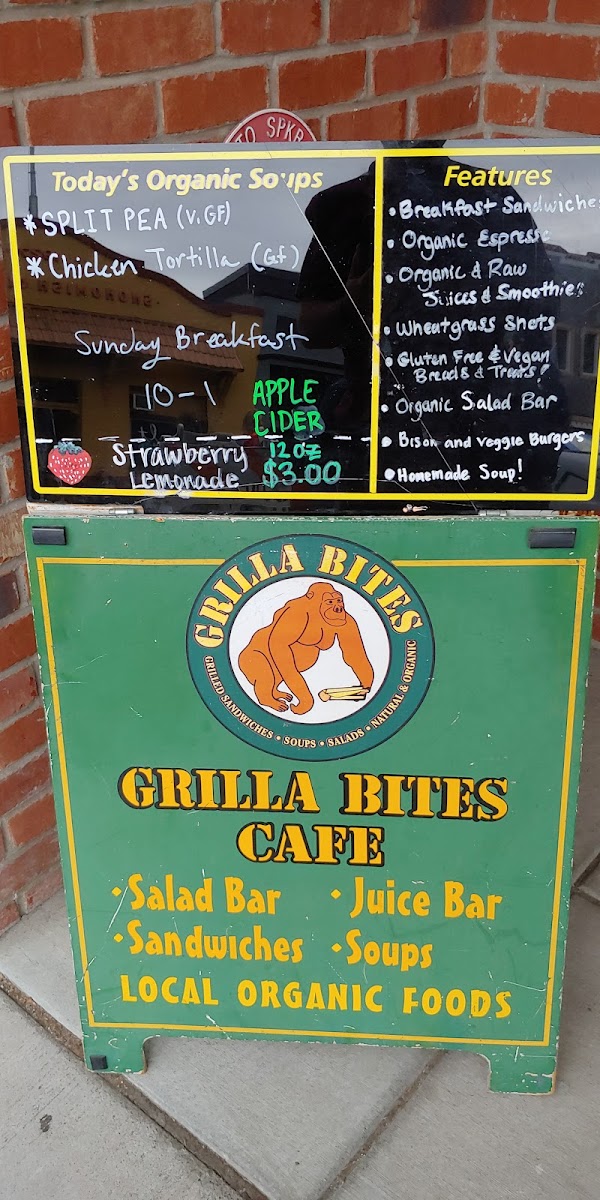 TO SPKR
Today's Organic Soups
* SPLIT PEA (V, GF)
* Chicken Tortilla (Gf)
Sunday Breakfast
10-1
APPLE
CIDER
12 oz
$3.00
Strawberry
Lemonade
Features
• Breakfast Sandwiche
• Organic Espresso
• Organic & Raw
Juices & Smoothies
• Wheatgrass Shots
• Gluten Free & Vegan
Breads & Treats!
• Organic Salad Bar
• Bison and Veggie Burgers
• Homemade Soup!
GRILLA BITES
GRILLED SANDWICHES • SOUPS • SALADS • NATURAL & ORGANIC
GRILLA BITES
CAFE
• Salad Bar • Juice Bar
• Sandwiches • Soups
LOCAL ORGANIC FOODS